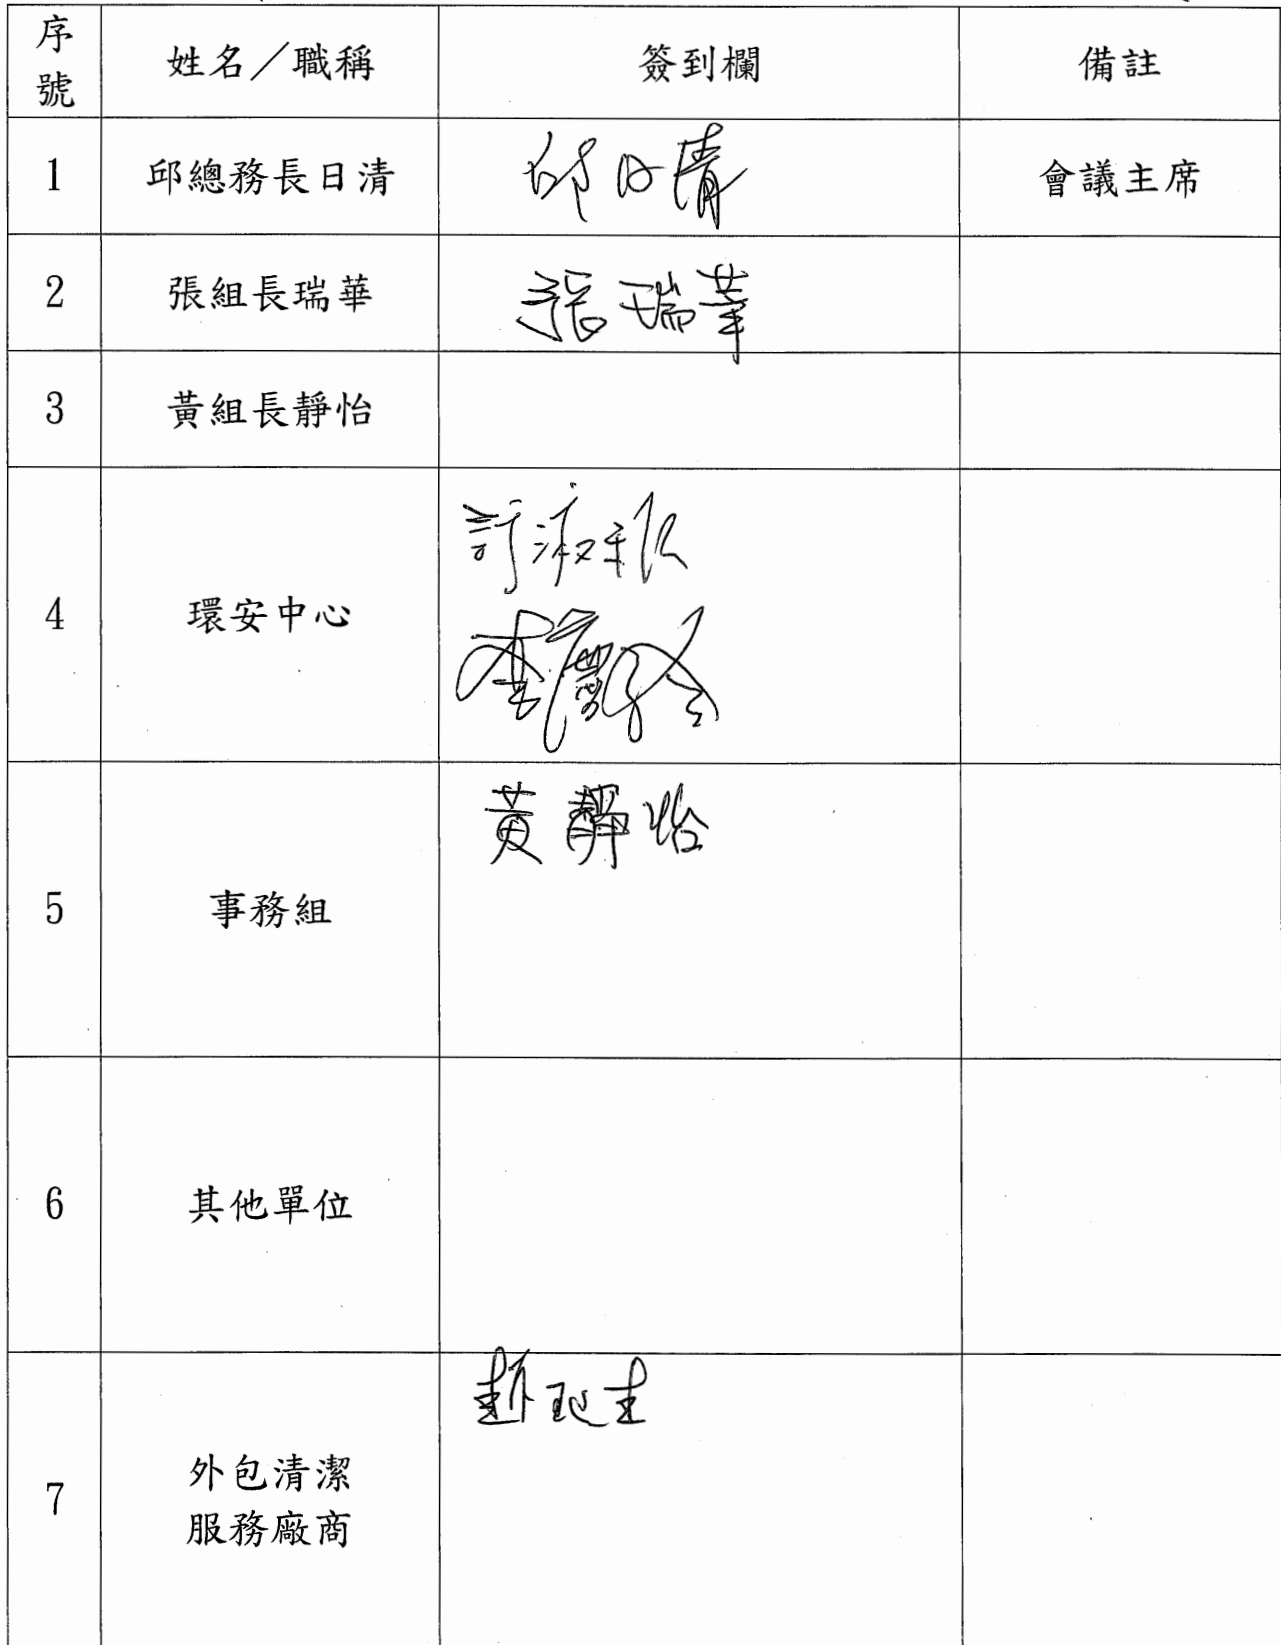 序號 姓名／職稱 簽到欄 備註
1 邱總務長日清 邱日清 會議主席
2 張組長瑞華 張瑞華
3 黃組長靜怡
4 環安中心 許淑
5 事務組 黃靜怡
6 其他單位
7 外包清潔 趙
服務廠商